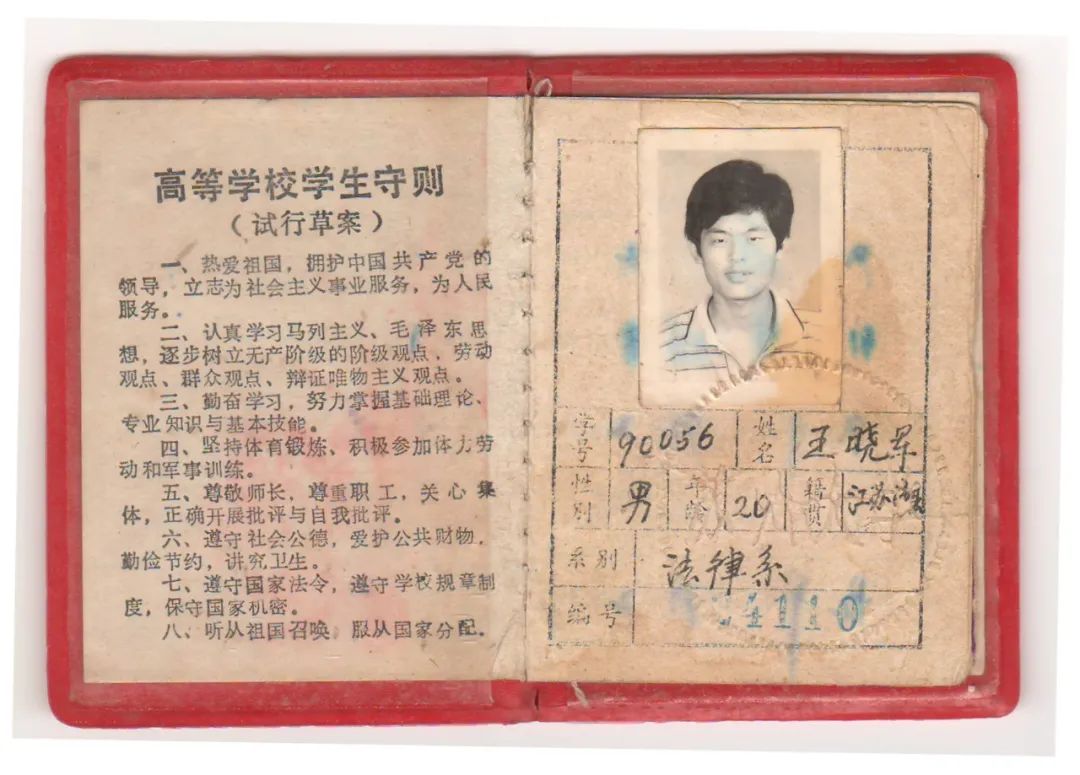 高等学校学生守则
（试行草案）
一、热爱祖国，拥护中国共产党的
领导，立志为社会主义事业服务，为人民
服务。
二、认真学习马列主义、毛泽东思
想，逐步树立无产阶级的阶级观点、劳动
观点、群众观点、辩证唯物主义观点。
三、勤奋学习，努力掌握基础理论、
专业知识与基本技能。
四、坚持体育锻炼、积极参加体力劳
动和军事训练。
五、尊敬师长，尊重职工，关心集
体，正确开展批评与自我批评。
六、遵守社会公德，爱护公共财物，
勤俭节约，讲究卫生。
七、遵守国家法令，遵守学校规章制
度，保守国家机密。
八、听从祖国召唤，服从国家分配。
学号 90056 姓名 王晓军
性别 男 年龄 20 籍贯 江苏
系别 法律系
编号 1110